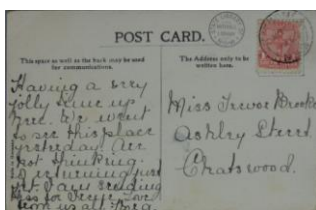 POST CARD.
This space as well as the back may be used
for communications.
The Address only to be
written here.
Having a very
jolly time up
here. We went
to see this place
yesterday. Are
not thinking
of returning just
yet.
Miss Trevor Brooke
Ashley Street
Chatswood.